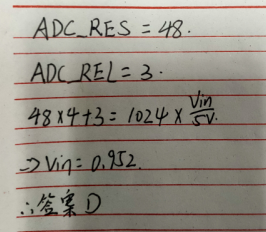 ADC_RES = 48.
ADC_REL = 3.
48×4+3 = 1024 × Vin/5V.
⇒ Vin = 0.952.
∴答案D